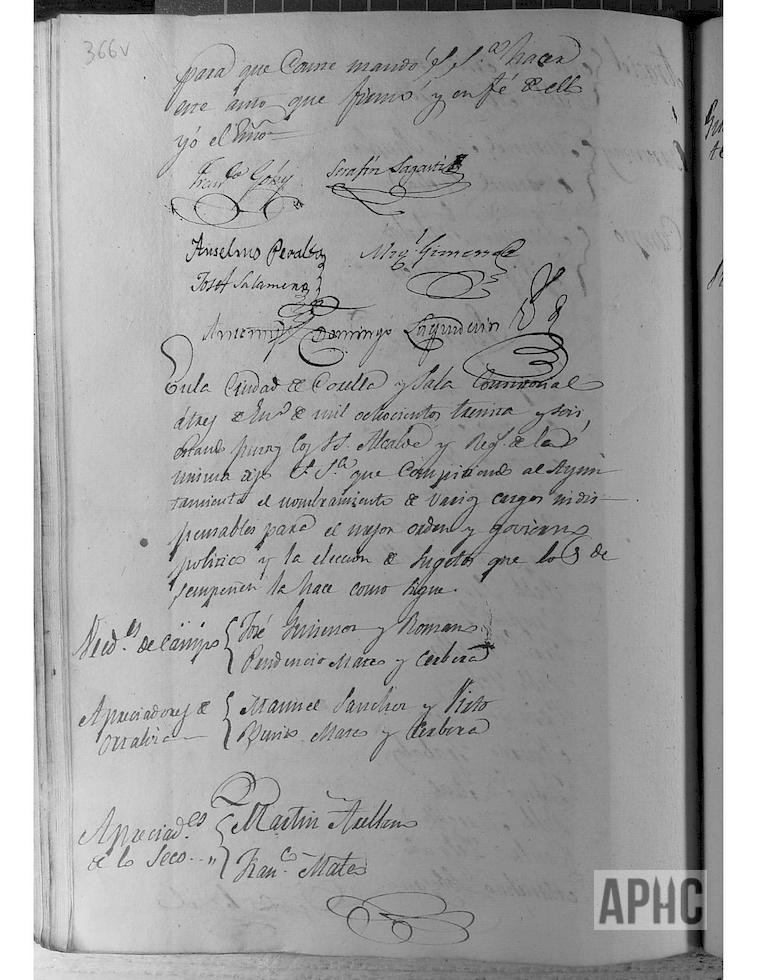 366v
para que Conste mandó S. S.ª hacer
este auto que firmó y en fé de ello
yó el Ssño
Fran.co Goñy Serafin Sagasti
Anselmo Peralta Mig.l Gimenez
Josef Salamero
Antonio Domingo
En la Ciudad de Corella y Sala Consistorial
á tres de En.o de mil ochocientos treinta y seis,
estando juntos los SS. Alcalde y Reg.s de la
misma dijo S. S.ª que Compitiendo al Ayun
tamiento el nombramiento de varios cargos indis
pensables para el mejor orden y govierno
politico y la eleccion de Sugetos que los de
sempeñen la hace como sigue.
Veed.es de Campo José Gimenez y Romano
Prudencio Mateo y Cerbera
Apreciadores de Manuel Sanchez y Virto
Ortaliza Benito Mateo y Cerbera
Apreciad.es Martin Arellano
de lo Seco Fran.co Mateo
APHC